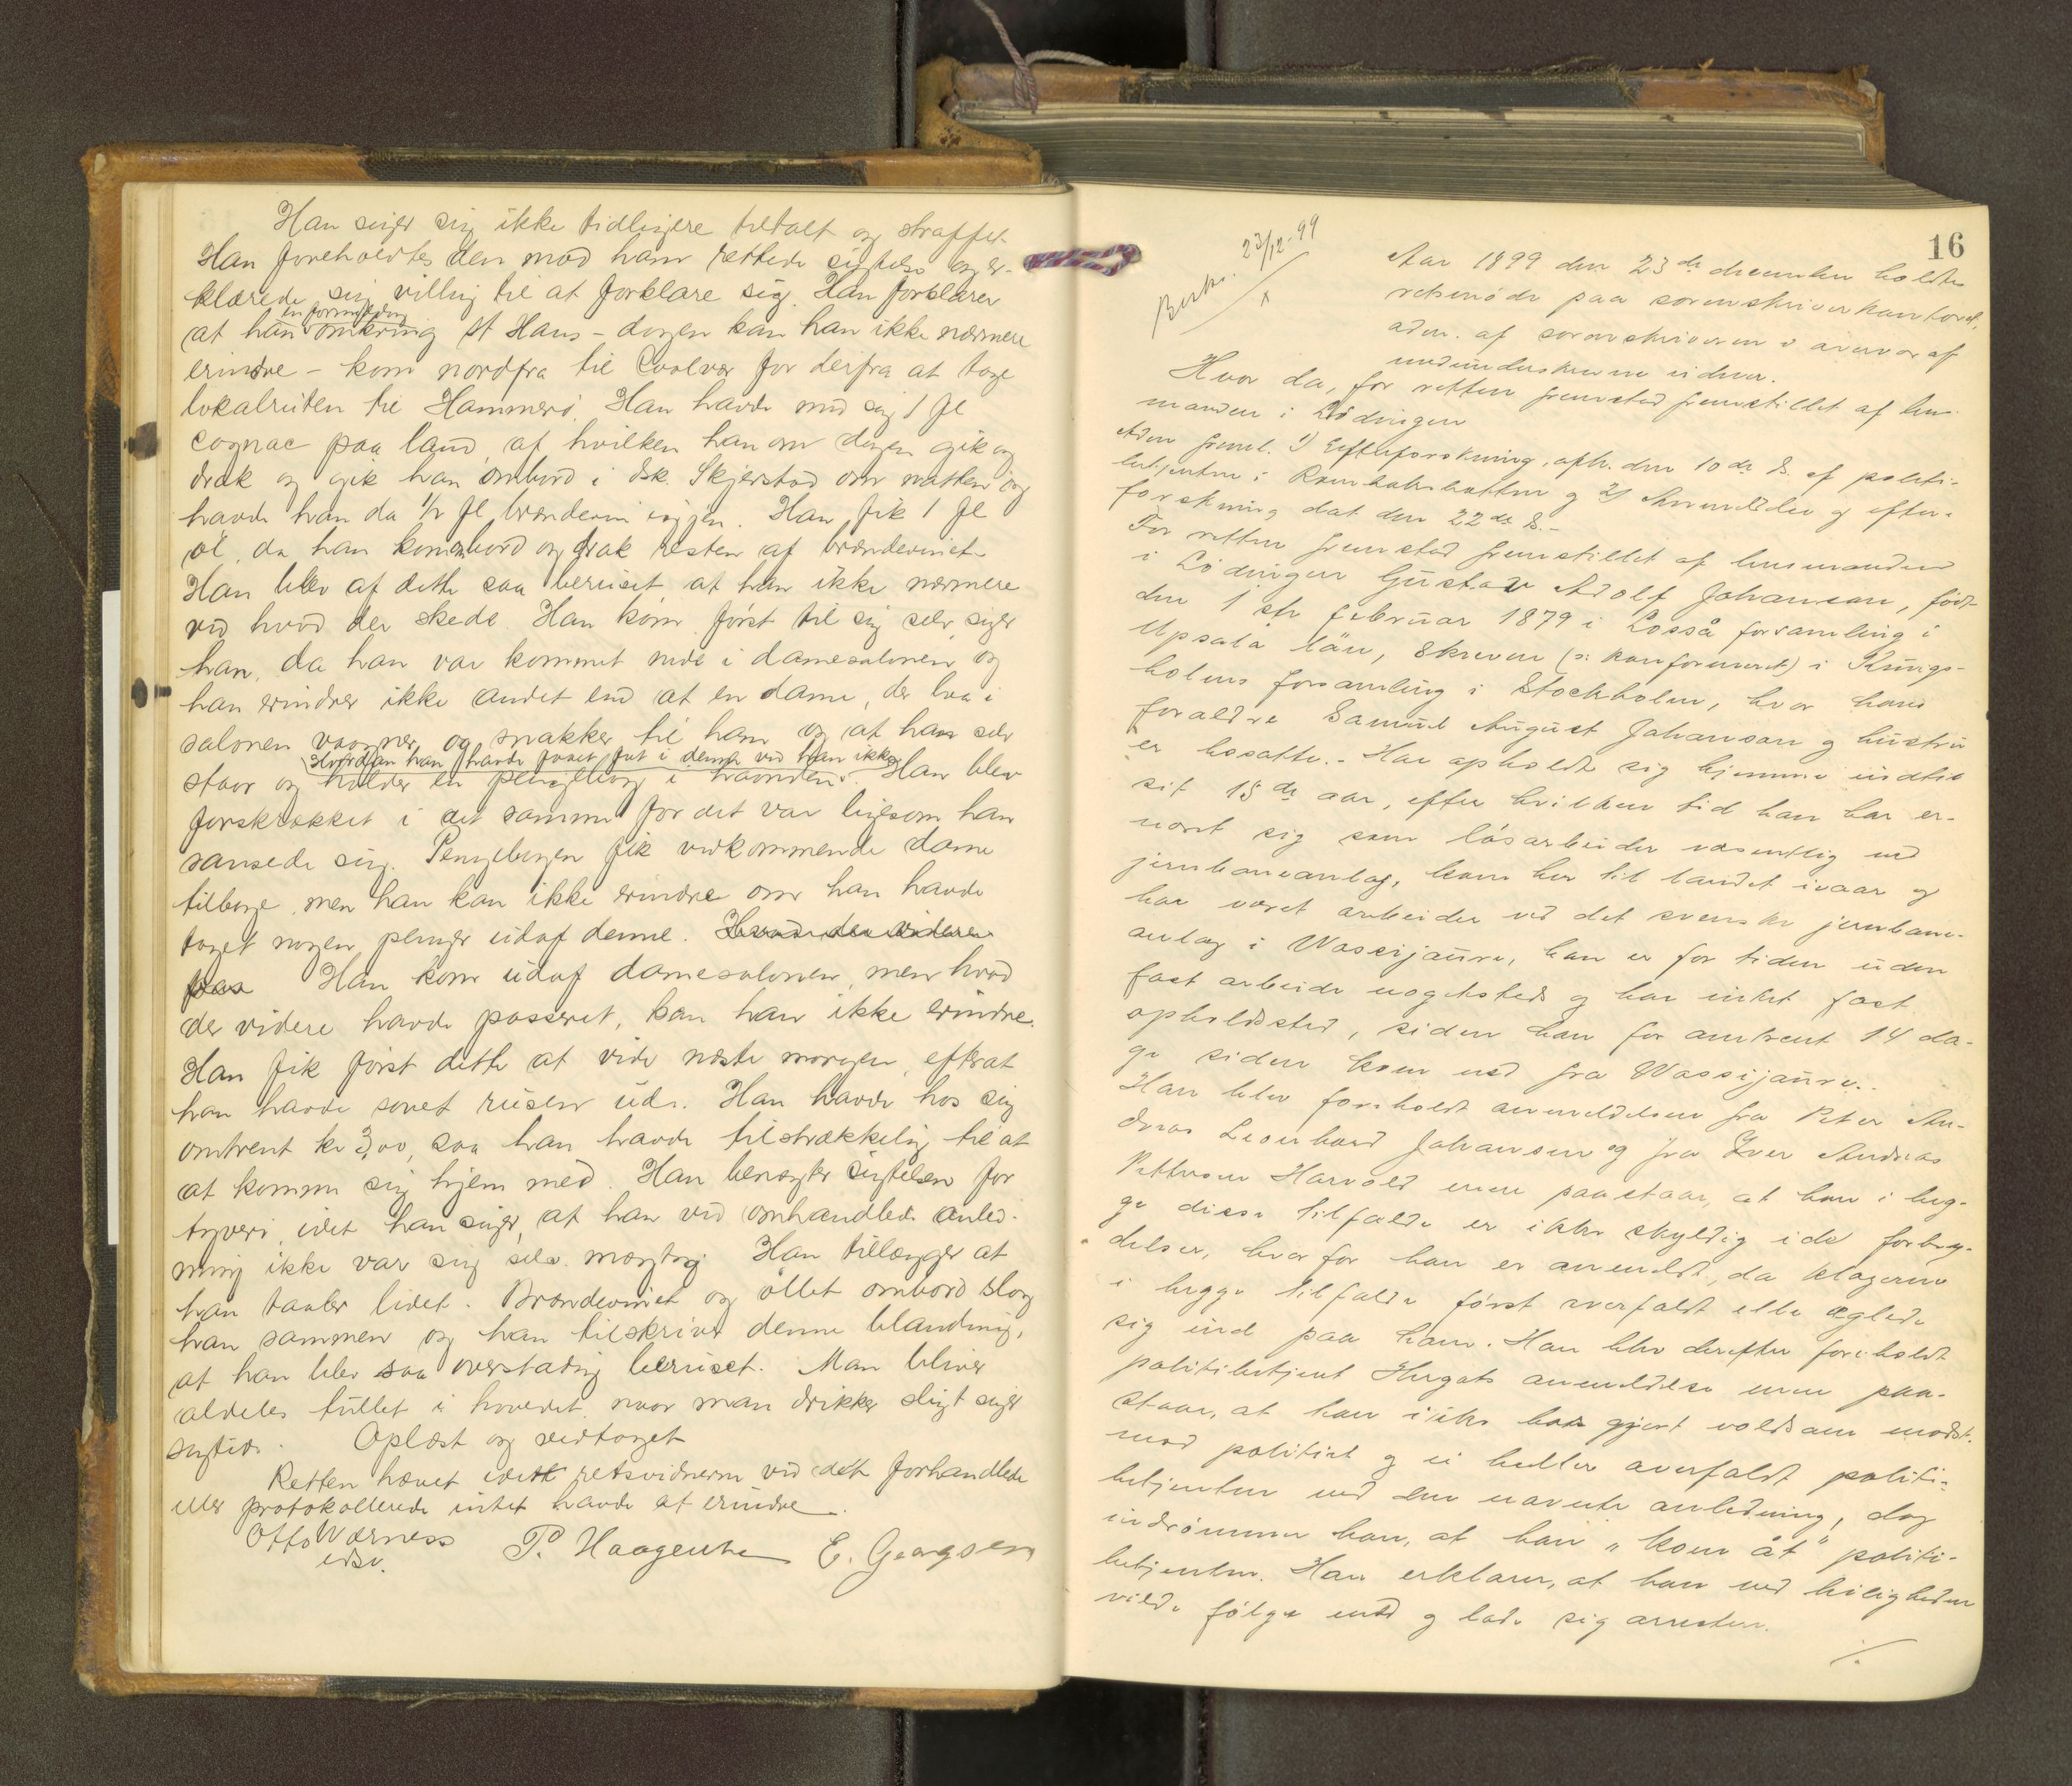 Han siger sig ikke tidligere tiltalt og straffet.
Han foreholdtes den mod ham rettede sigtelse og er-
klærede sig villig til at forklare sig. Han forklarer
en formiddag
at han omkring St Hans - dagen kan han ikke nærmere
erindre - kom nordfra til Svolvær for derfra at tage
lokalruten til Hammerö. Han havde med sig 1 fl
cognac paa land, af hvilken han om dagen gik og
drak og gik han ombord i dsk. Skjerstad om natten og
havde han da 1/2 fl brændevin igjen. Han fik 1 fl
øl, da han kom ombord og drak resten af brændevinet.
Han blev af dette saa beruset, at han ikke nærmere
vid hvad der skede. Han kom först til sig selv, siger
han, da han var kommet ned i damesalonen og
han erindrer ikke andet end at en dame, der laa i
salonen vaagner og snakker til ham og at han selv
Hvordan han havde faaet fat i denne vid han ikke
staar og holder en pengebog i haanden. Han blev
forskrækket i det samme for det var ligesom han
sansede sig. Pengebogen fik vedkommende dame
tilbage, men han kan ikke erindre om han havde
taget nogen penger udaf denne. Hvad der videre
pas Han kom udaf damesalonen, men hvad
der videre havde passeret, kan han ikke erindre.
Han fik först dette at vide næste morgen, efterat
han havde sovet rusen ud. Han havde hos sig
omtrent kr 3,00, saa han havde tilstrækkelig til at
at komme sig hjem med. Han benægter sigtelsen for
tyveri, idet han siger, at han ved omhandlede anled-
ning ikke var sig selv mægtig. Han tillægger at
han taaler lidet. Brændevinet og öllet ombord slog
han sammen og han tilskriver denne blanding,
at han blev saa overstadig beruset. Man bliver
aldeles tullet i hovedet, naar man drikker sligt siger
sigtede. Oplæst og vedtaget
Retten hævet idet retsvidnerne ved det forhandlede
eller protokollerede intet havde at erindre.
Otto Wærness P. Haagensen E. Georgsen
edsv.
16
Besk. 23/12-99
x
Aar 1899 den 23de december holdtes
retsmöde paa sorenskriverkontoret,
adm. af sorenskriveren i nærvær af
undenderskrevne vidner.
Hvor da, for retten fremstod fremstillet af lens-
manden i Lödingen
Adm freml. 1) Efterforskning, afh. den 10de ds. af politi-
betjenten i Rombaksbotten og 2) Anmeldelse og efter-
forskning dat den 22de ds.-
For retten fremstod fremstillet af lensmanden
i Lödingen Gustav Adolf Johanson, född
den 1ste februar 1879 i Losså forsamling i
Upsala län, skreven (ɔ: konfirmeret) i Kungs-
holms forsamling i Stockholm, hvor hans
foraldre Samuel August Johanson og hustru
er bosatte.- Har opholdt sig hjemme indtil
sit 15de aar, efter hvilken tid han har er-
næret sig som lösarbeider væsentlig ved
jernbaneanlæg, kom her til landet ivaar og
har været arbeider ved det svenske jernbane-
anlæg i Wassijaure, han er for tiden uden
fast arbeide nogetsteds og har intet fast
opholdssted, siden han for omtrent 14 da-
ge siden kom ned fra Wassijaure.-
Han blev foreholdt anmeldelsen fra Peter An-
dreas Leonhard Johansen og fra Iver Andreas
Pettersen Harvold men paastaar, at han i beg-
ge disse tilfælde er ikke skyldig i de forbry-
delser, hvorfor han er anmeldt, da klagerne
i begge tilfælde först overfaldt eller æglede
sig ind paa ham. Han blev derefter foreholdt
politibetjent anmeldelse men paa-
staar, at han ikke har gjort voldsom modst.
mod politiet og ei heller overfaldt politi-
betjenten ved den nævnte anledning, dog
indrömmer han, at han "kom åt" politi-
betjenten. Han erklærer, at han ved leiligheden
vilde fölge med og lade sig arrestere.
./.